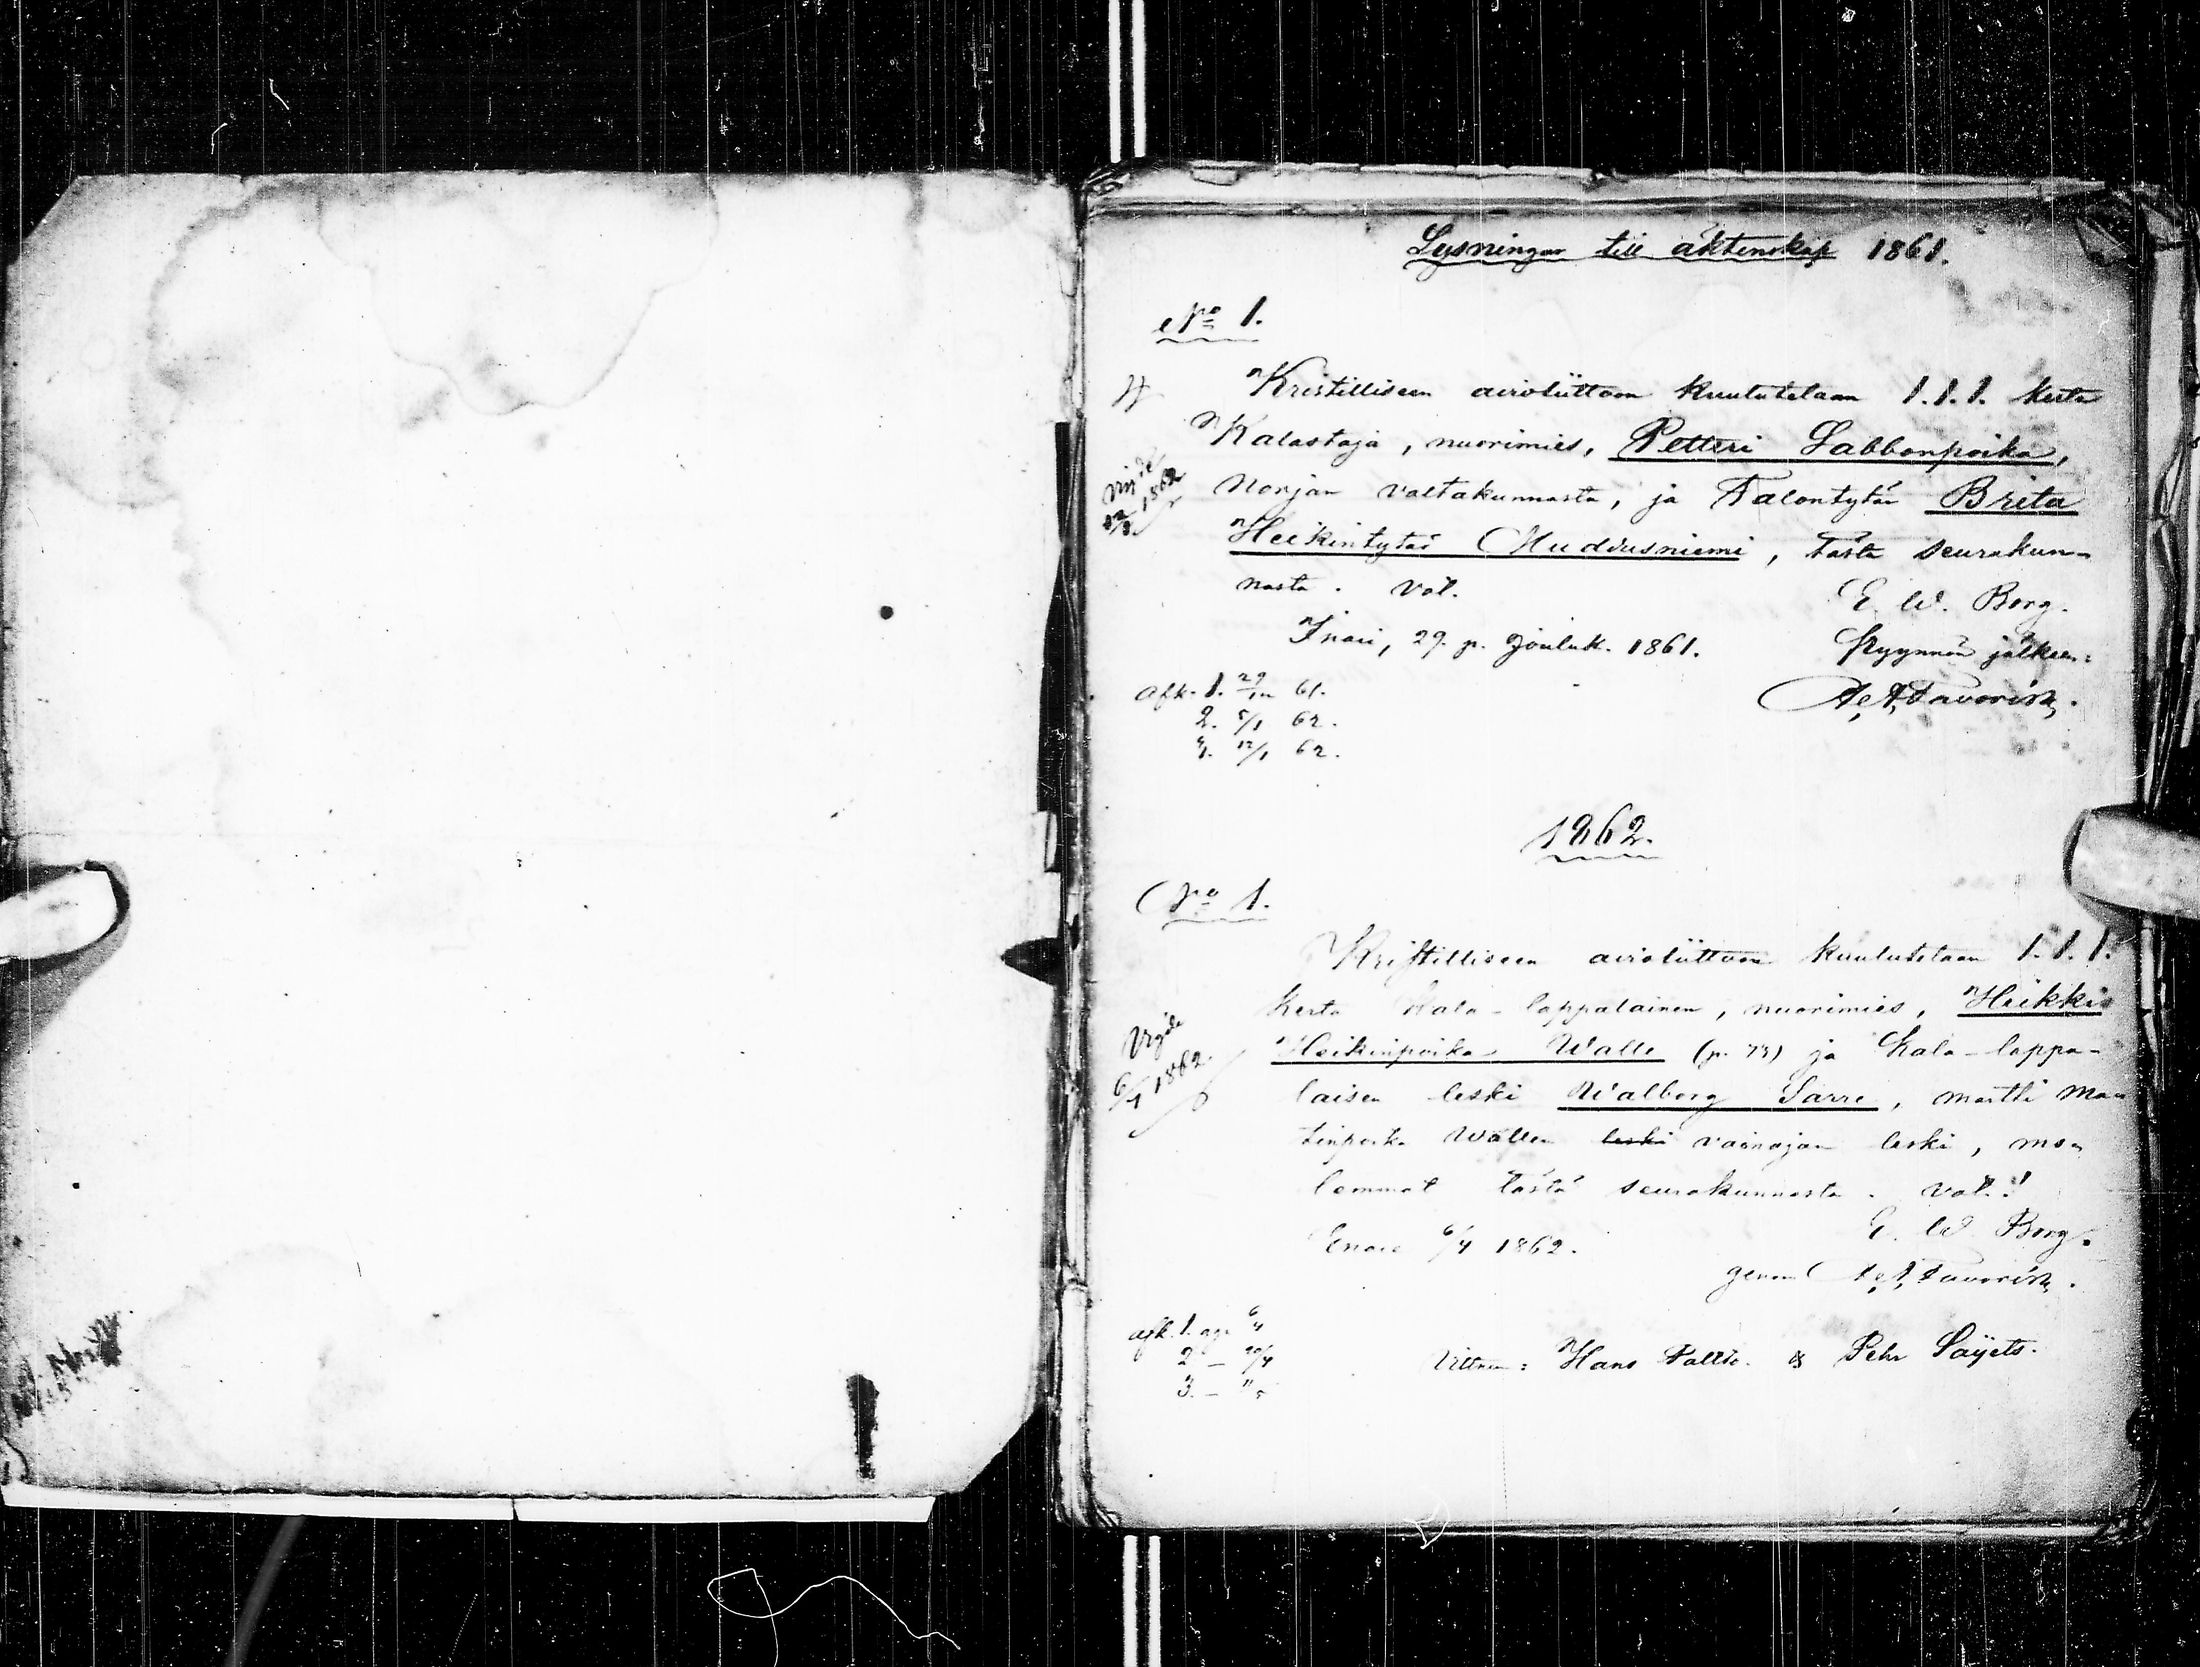 Lysningar till äktenskap 1861.
No 1.
Kristilliseen avioliittoon kuulutetaan 1.1.1. kerta
Kalastaja, nuorimies, Petteri Sabbonpoika,
Vigde 12/1 1862
Norjan valtakunnasta, ja Talontytär Brita
Heikintytär Muddusniemi, tästä seurakun-
nasta. Vol.
E. W. Borg.
Inari, 29. p. Jouluk. 1861.
Pyynnön jälkeen:
afk. 1. 29/12 61.
2. 5/1 62.
3. 12/1 62.
1862.
No 1.
Kristilliseen avioliittoon kuulutetaan 1.1.1.
kerta Kala-lappalainen, nuorimies, Heikki
Vigde 6/4 1862.
Heikinpoika Walle (p. 73) ja Kala-lappa-
laisen leski Walborg Sarre, Martti Mar
tinpoika Wallen leski vainajan leski, mo
lemmat tästä seurakunnasta. Vol.
E. W. Borg.
Enare 6/4 1862.
genom
afk. 1. 6/4
2 — 20/4
3. —
Vittnen: Hans Paltto. & Pehr Saijets.